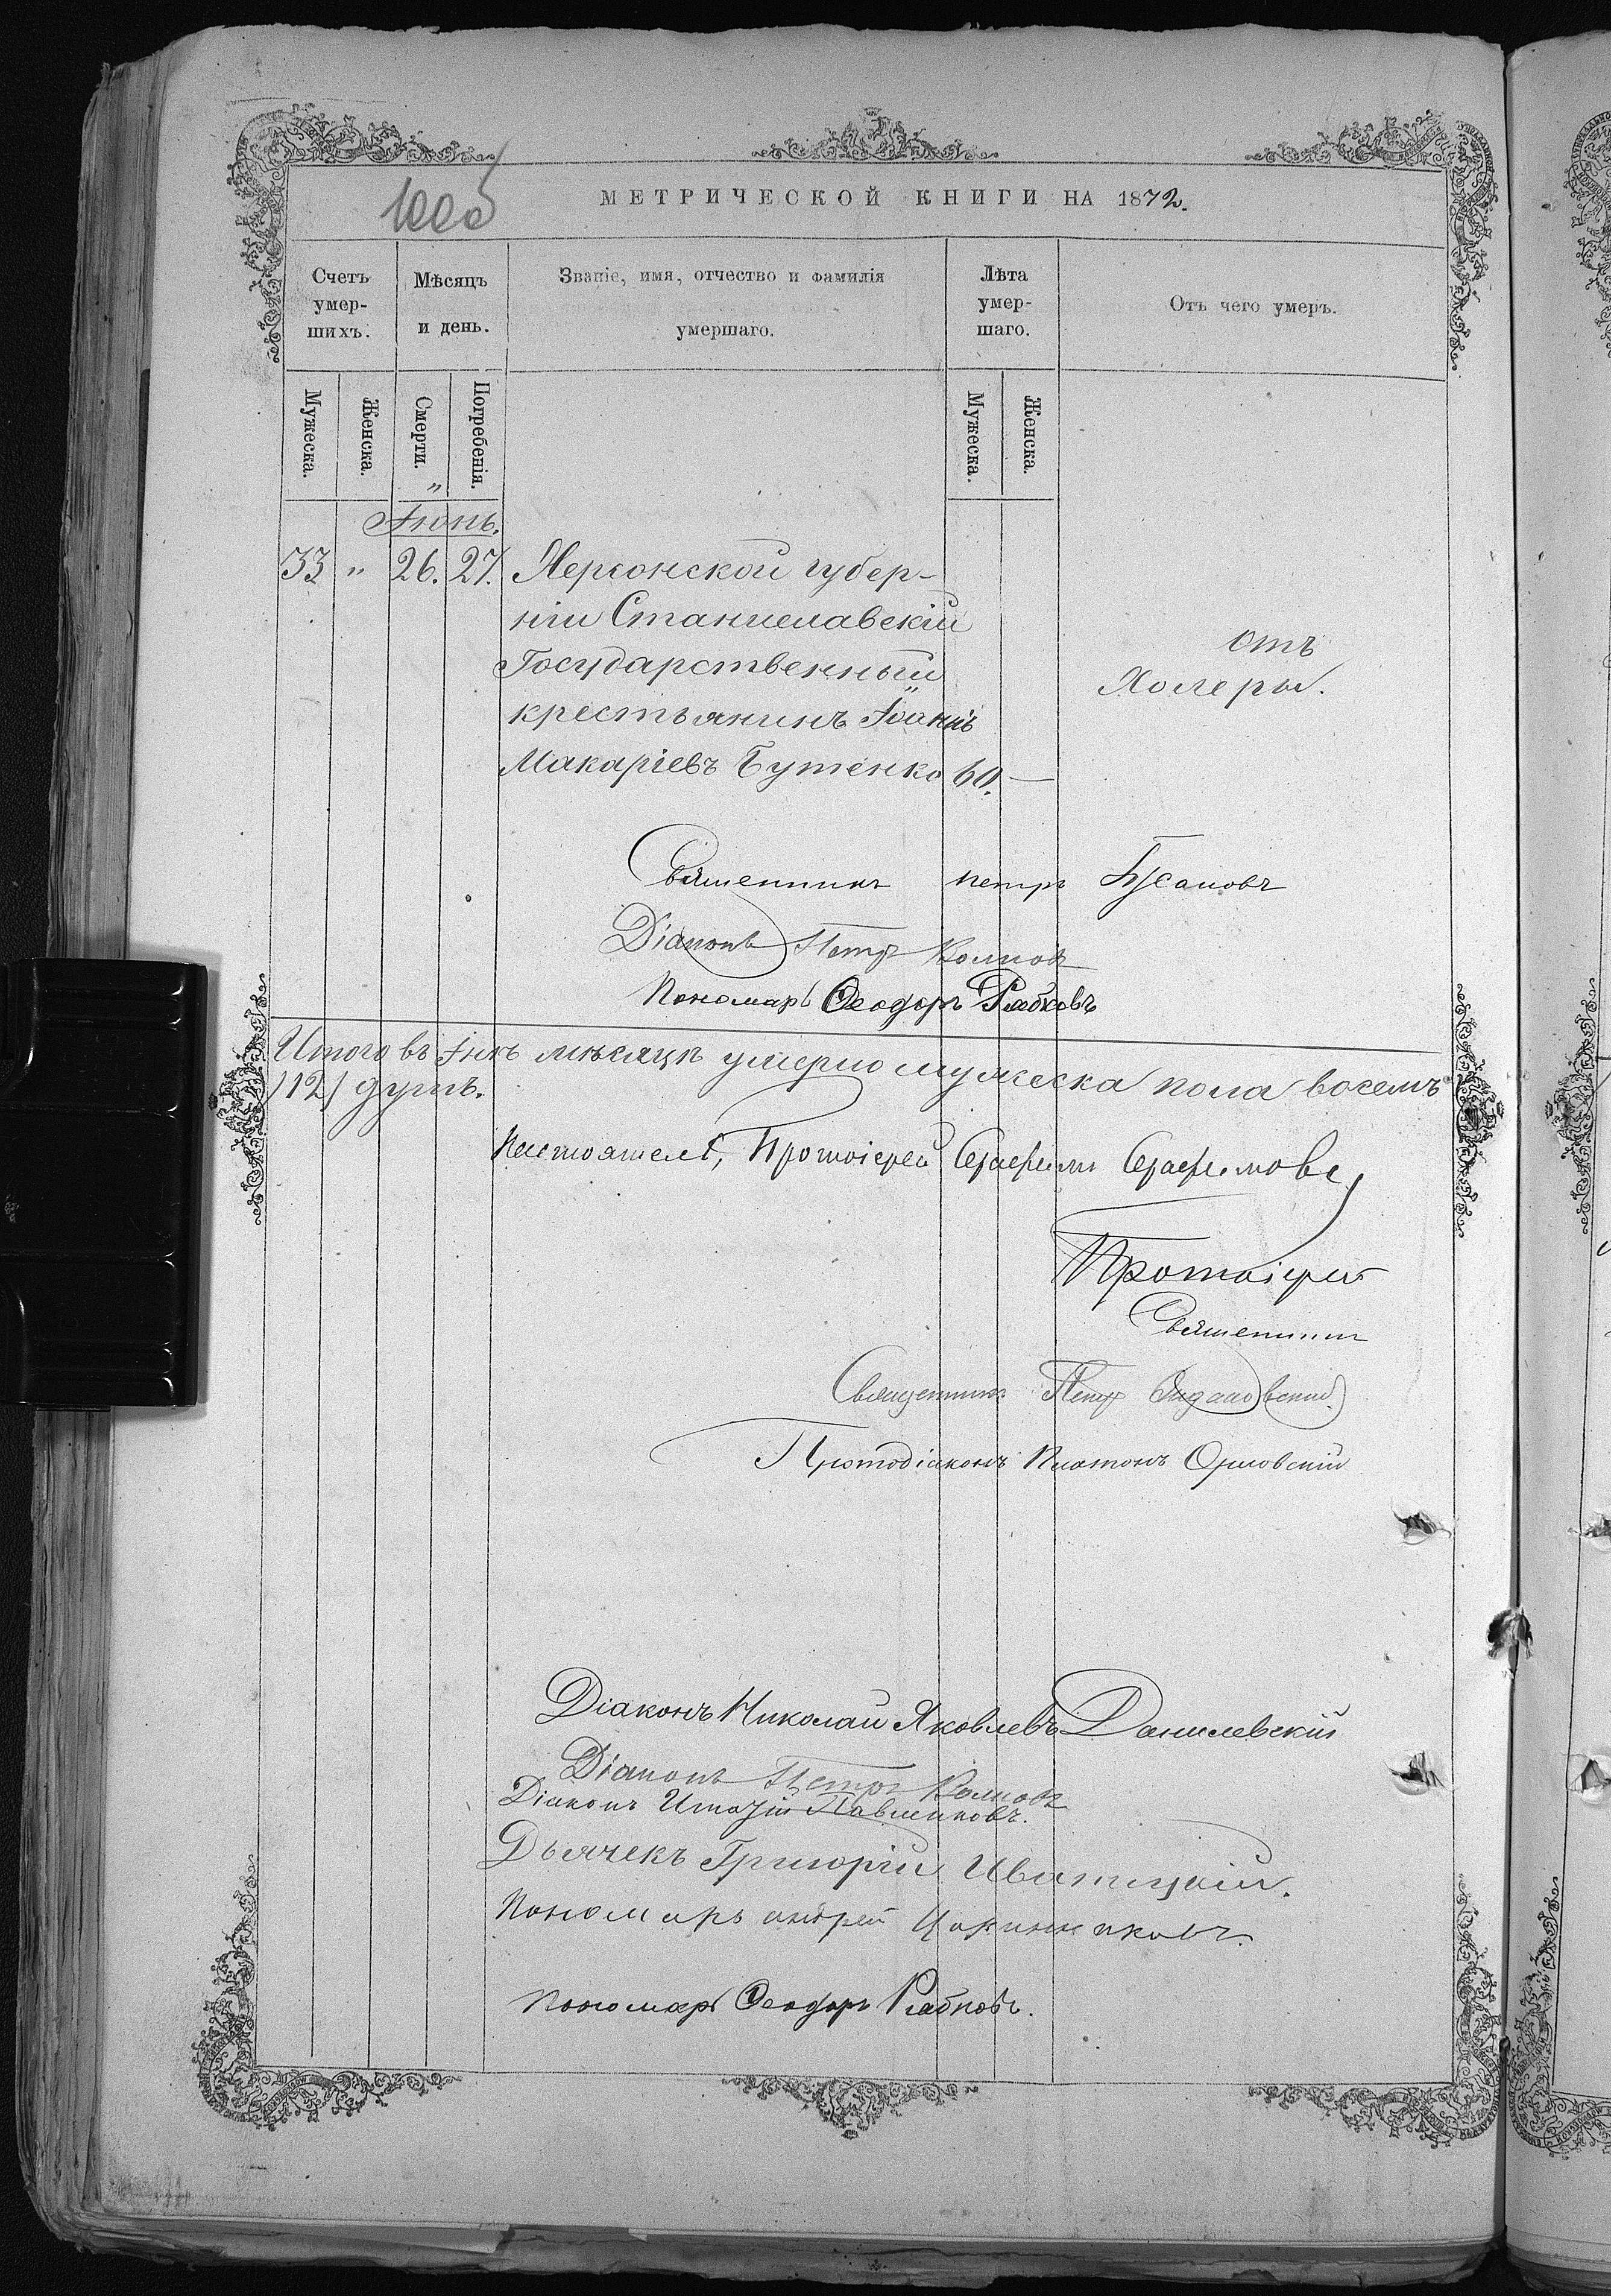 МЕТРИЧЕСКОЙ КНИГИ НА 1872.
Счетъ умер-шихъ.
Мѣсяцъ и день.
Званіе, имя, отчество и фамилія умершаго.
Лѣта умер-шаго.
Отъ чего умеръ.
Мужеска.
Женска.
Смерти.
Погребенія.
Мужеска.
Женска.
Іюнь.
33 " 26. 27. Херсонской губер-
ніи Станиславскій
Государственный
крестьянинъ Іоаннъ
Макаріевъ Бутенко 60. —
отъ
Холеры.
Священникъ Петръ
Діаконъ Петръ
Пономарь Ѳеодоръ Рябковъ
Итого въ Іюнѣ мѣсяцѣ умерло мужеска пола восемь
/12/ душъ.
Настоятель, Протоіерей Серафимъ Серафимовъ
Протоіерей
Священникъ
Священникъ Петръ
Протодіаконъ Платонъ Орловскій
Діаконъ Николай Яковлевъ Данилевскій
Діаконъ Петръ
Діаконъ Павликовъ.
Дьячекъ Григорій
Пономарь Андрей
Пономарь Ѳеодоръ Рябковъ.